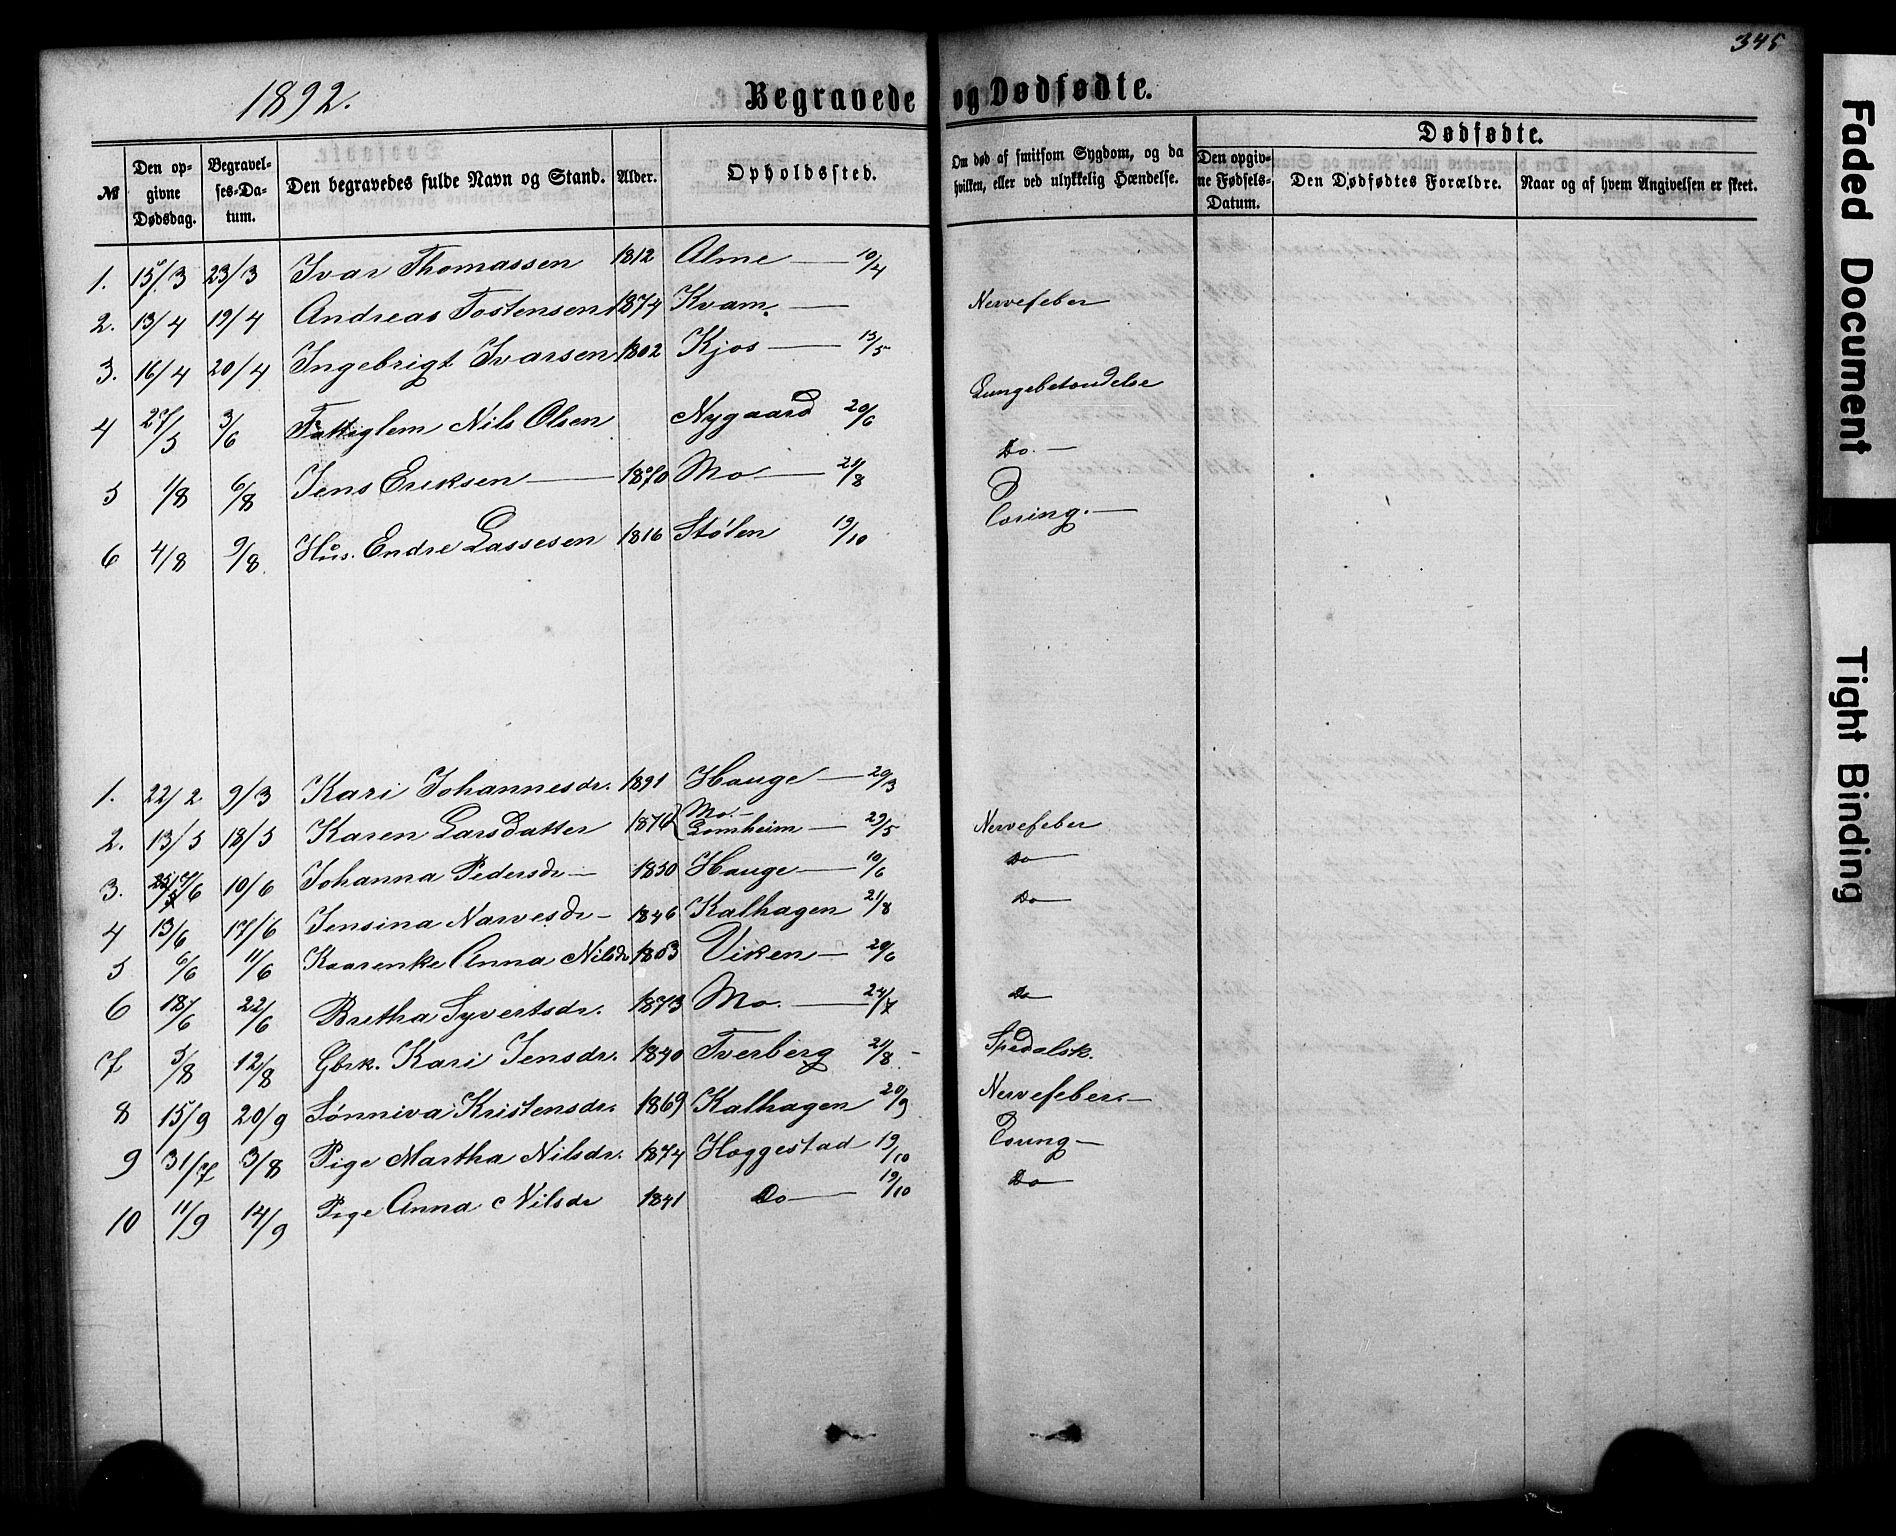 345
1892.
Begravede og Dødfødte.
№
Den opgivne Dødsdag.
Begravelses-Datum.
Den begravedes fulde Navn og Stand.
Alder.
Opholdssted.
Om død af smitsom Sygdom, og da hvilken, eller ved ulykkelig Hændelse.
Dødfødte.
Den opgivne Fødsels-Datum.
Den Dødfødtes Forældre.
Naar og af hvem Angivelsen er skeet.
1. 15/3 23/3 Ivar Thomassen 1812 Alme — 10/4
2. 13/4 19/4 Andreas Tostensen 1874 Kvam. — Nervefeber
3. 16/4 20/4 Ingebrigt Ivarsen 1802 Kjos — 13/5
4 27/5 3/6 Fattiglem Nils Olsen Nygaard 20/6 Lungebetændelse
5 1/8 6/8 Jens Eriksen — 1870 Mo — 21/8 Do. —
6 4/8 9/8 Hus. Endre Lassesen 1816 Stølen 19/10 Tæring. —
1. 22/2 9/3 Kari Johannesdr. 1891 Hauge — 20/3
2. 13/5 18/5 Karen Larsdatter 1876 Mo. — Lomheim — 29/5 Nervefeber
3. 10/6 Johanna Pedersdr — 1850 Hauge — 10/6 Do —
4 13/6 17/6 Jensina Narvesdr — 1846 Kalhagen 21/8 Do —
5 6/6 11/6 Kaarenke Anna Nilsdr 1863 Viken — 20/6
6 18/6 22/6 Bretha Syvertsdr. 1873 Mo. — 24/7 Do
7 5/8 12/8 Gbrk. Kari Jensdr. 1840 Tverberg 21/8 — Spedalsk.
8 15/9 20/9 Sønniva Kristensdr. 1869 Kalhagen 20/9 Nervefeber. —
9 31/7 3/8 Pige Martha Nilsdr. 1874 Hoggestad 19/10 Tæring —
10 11/9 14/9 Pige Anna Nilsdr 1841 Do — 19/10 Do
Faded Document
Tight Binding